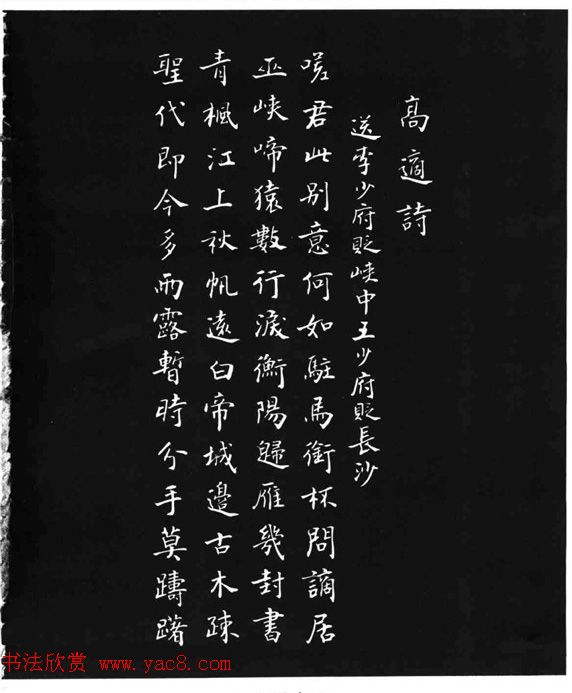 高適詩
送李少府貶峽中王少府貶長沙
嗟君此別意何如駐馬銜杯問謫居
巫峽啼猿數行淚衡陽歸雁幾封書
青楓江上秋帆遠白帝城邊古木疎
聖代即今多雨露暫時分手莫躊躇
书法欣赏 www.yac8.com